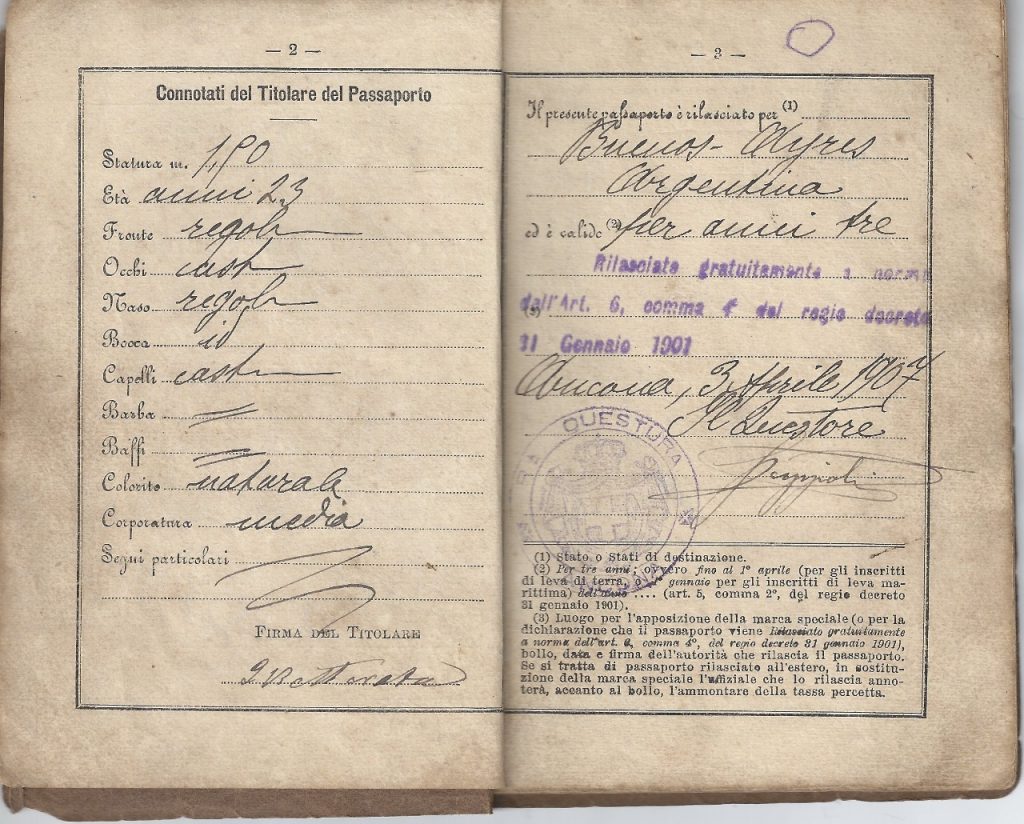 — 2 —
Connotati del Titolare del Passaporto
Statura m.
Età anni 23
Fronte regol
Occhi cast
Naso regol
Bocca id
Capelli cast
Barba =
Baffi =
Colorito naturale
Corporatura media
Segni particolari
FIRMA DEL TITOLARE
— 3 —
Il presente passaporto è rilasciato per (1)
Buenos-Ayres
Argentina
ed è valido (2) per anni tre
Rilasciato gratuitamente a norma
(3) dell'Art. 6, comma 4 del regio decreto
31 Gennaio 1901
Ancona, 3 Aprile 1907
Il Questore
QUESTURA
(1) Stato o Stati di destinazione.
(2) Per tre anni; ovvero fino al 1° aprile (per gli inscritti
di leva di terra, o 1° gennaio per gli inscritti di leva ma-
rittima) dell'anno .... (art. 5, comma 2°, del regio decreto
31 gennaio 1901).
(3) Luogo per l'apposizione della marca speciale (o per la
dichiarazione che il passaporto viene Rilasciato gratuitamente
a norma dell'art. 6, comma 4°, del regio decreto 31 gennaio 1901),
bollo, data e firma dell'autorità che rilascia il passaporto.
Se si tratta di passaporto rilasciato all'estero, in sostitu-
zione della marca speciale l'uffiziale che lo rilascia anno-
terà, accanto al bollo, l'ammontare della tassa percetta.